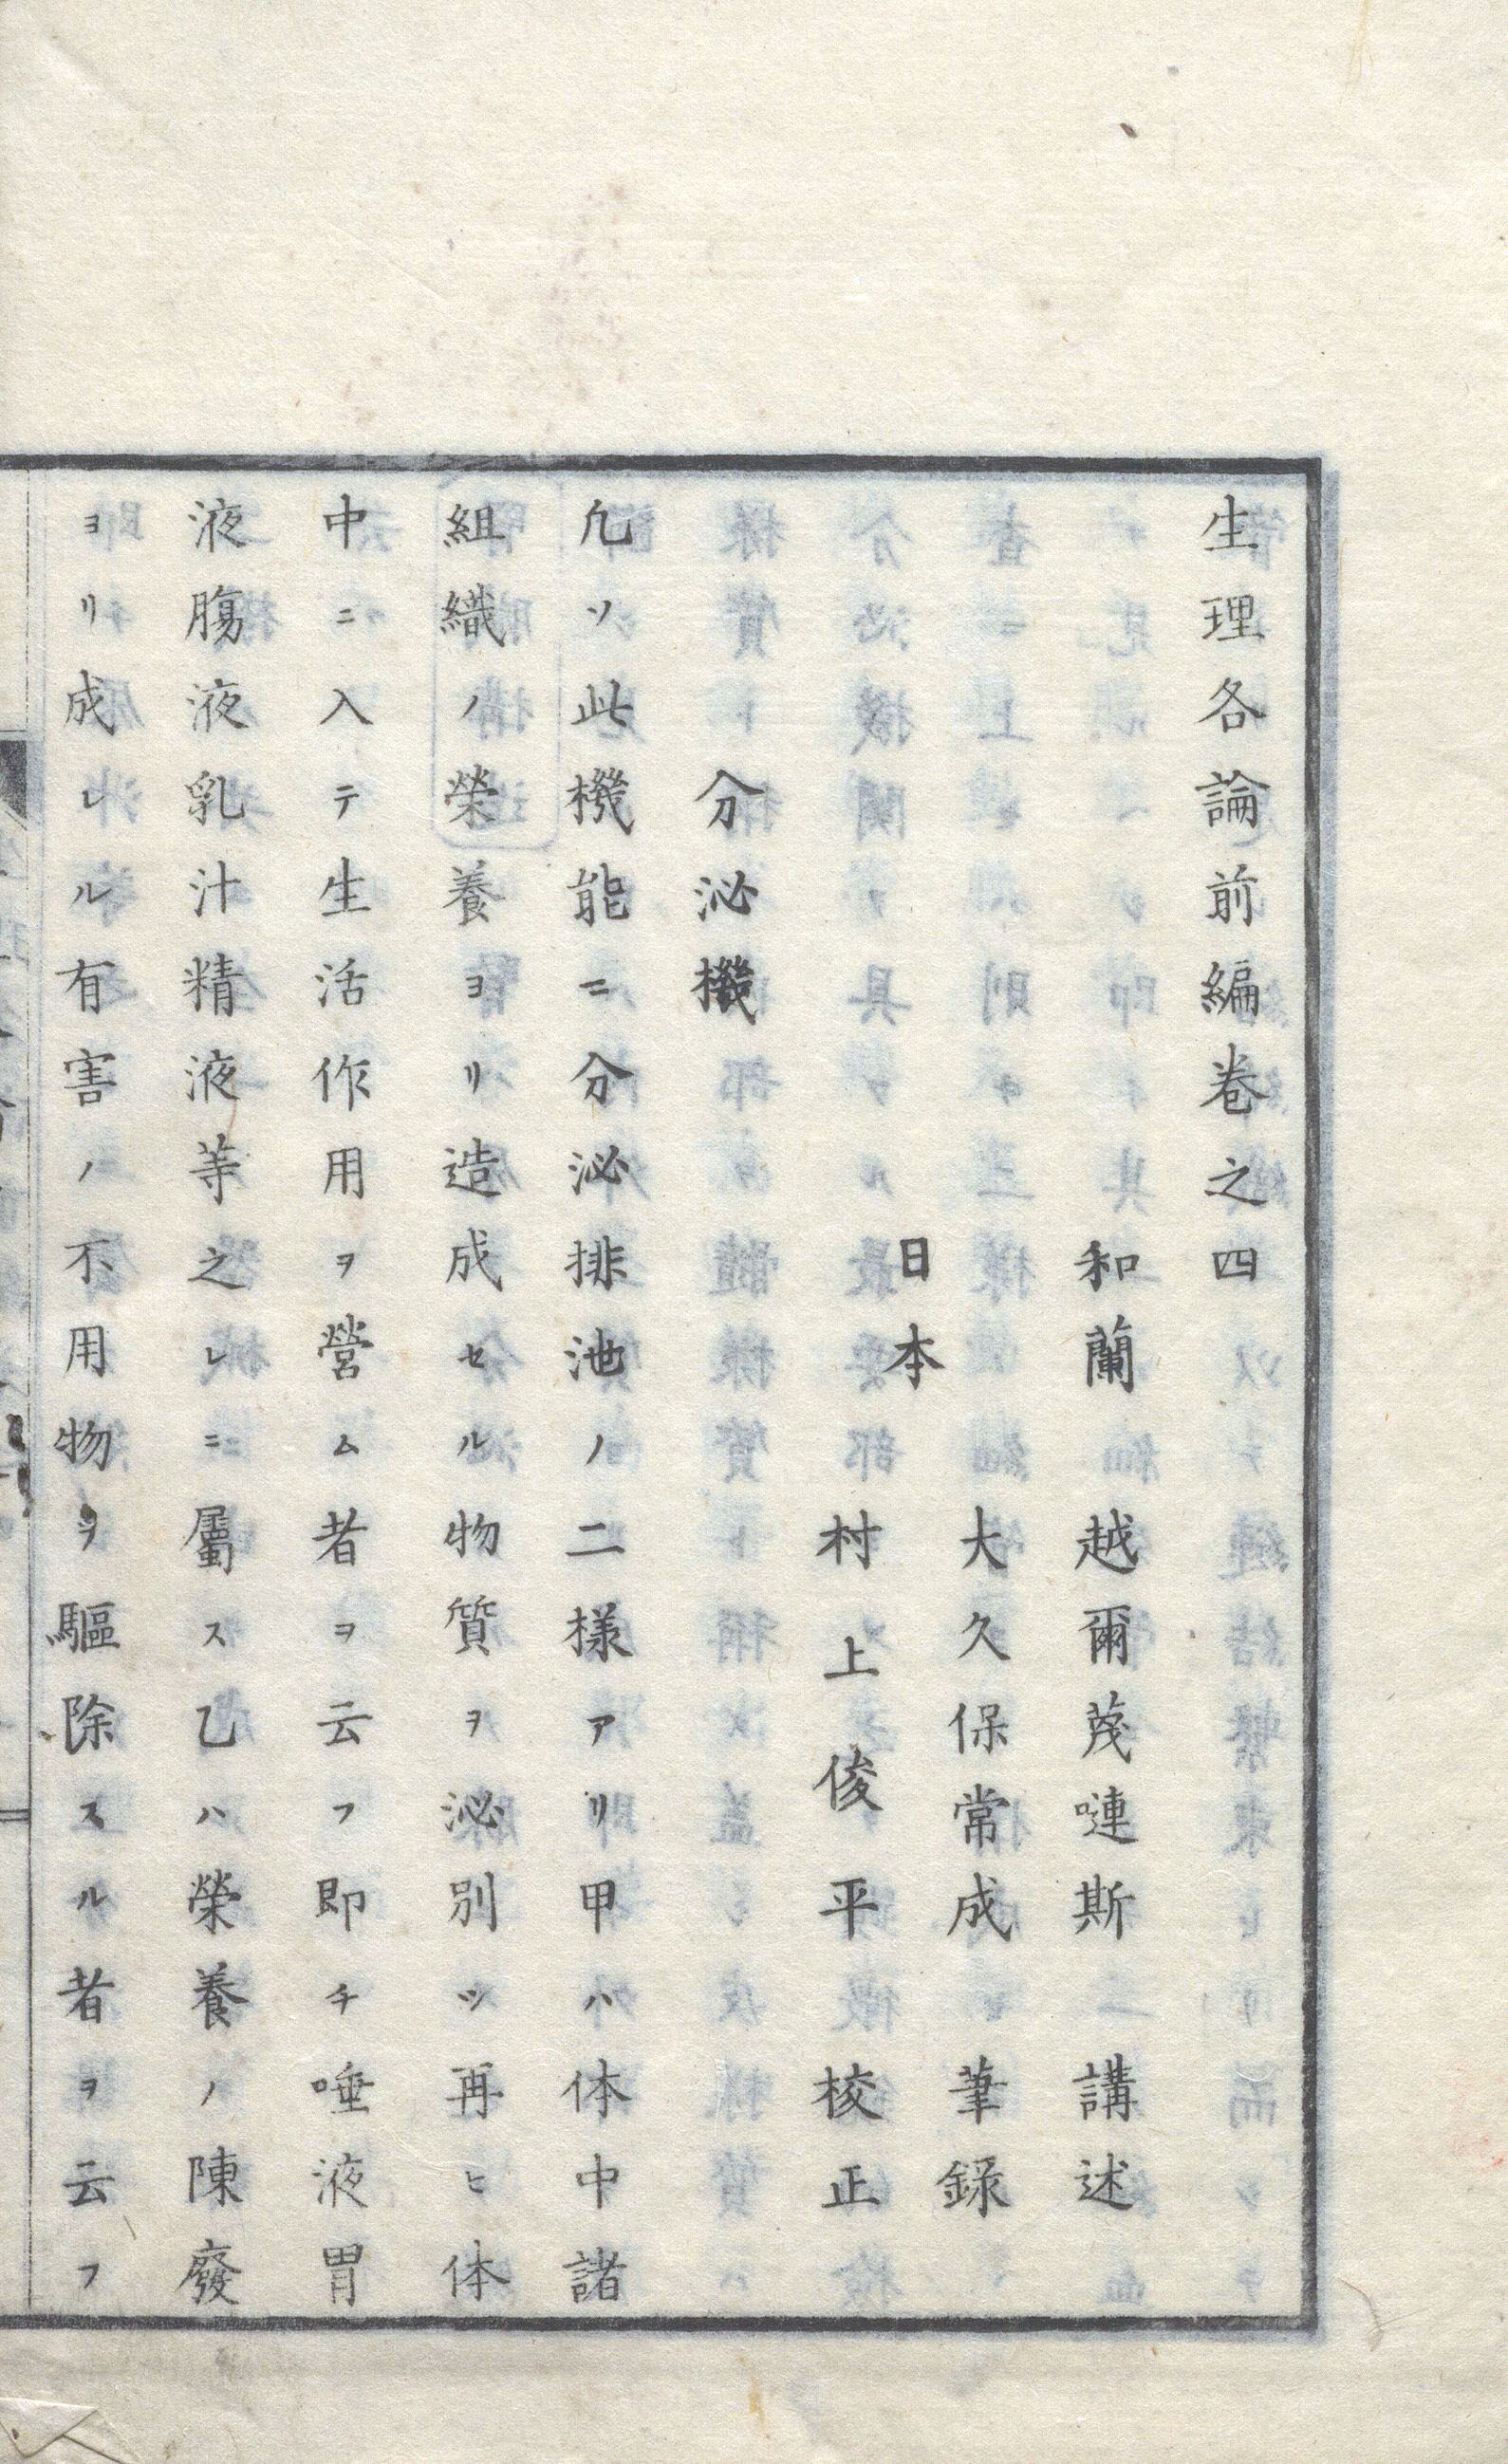 生理各論前編卷之四
和蘭　越爾蔑嗹斯　講述
日本　大久保常成　筆錄
村上俊平　校正
分泌機
凡ソ此機能ニ分泌排泄ノ二様アリ甲ハ体中諸
組織ノ榮養ヨリ造成セル物質ヲ泌別ツ再ヒ体
中ニ入テ生活作用ヲ營ム者ヲ云フ即チ唾液胃
液膓液乳汁精液等之レニ屬ス乙ハ榮養ノ陳廢
ヨリ成レル有害ノ不用物ヲ驅除スル者ヲ云フ